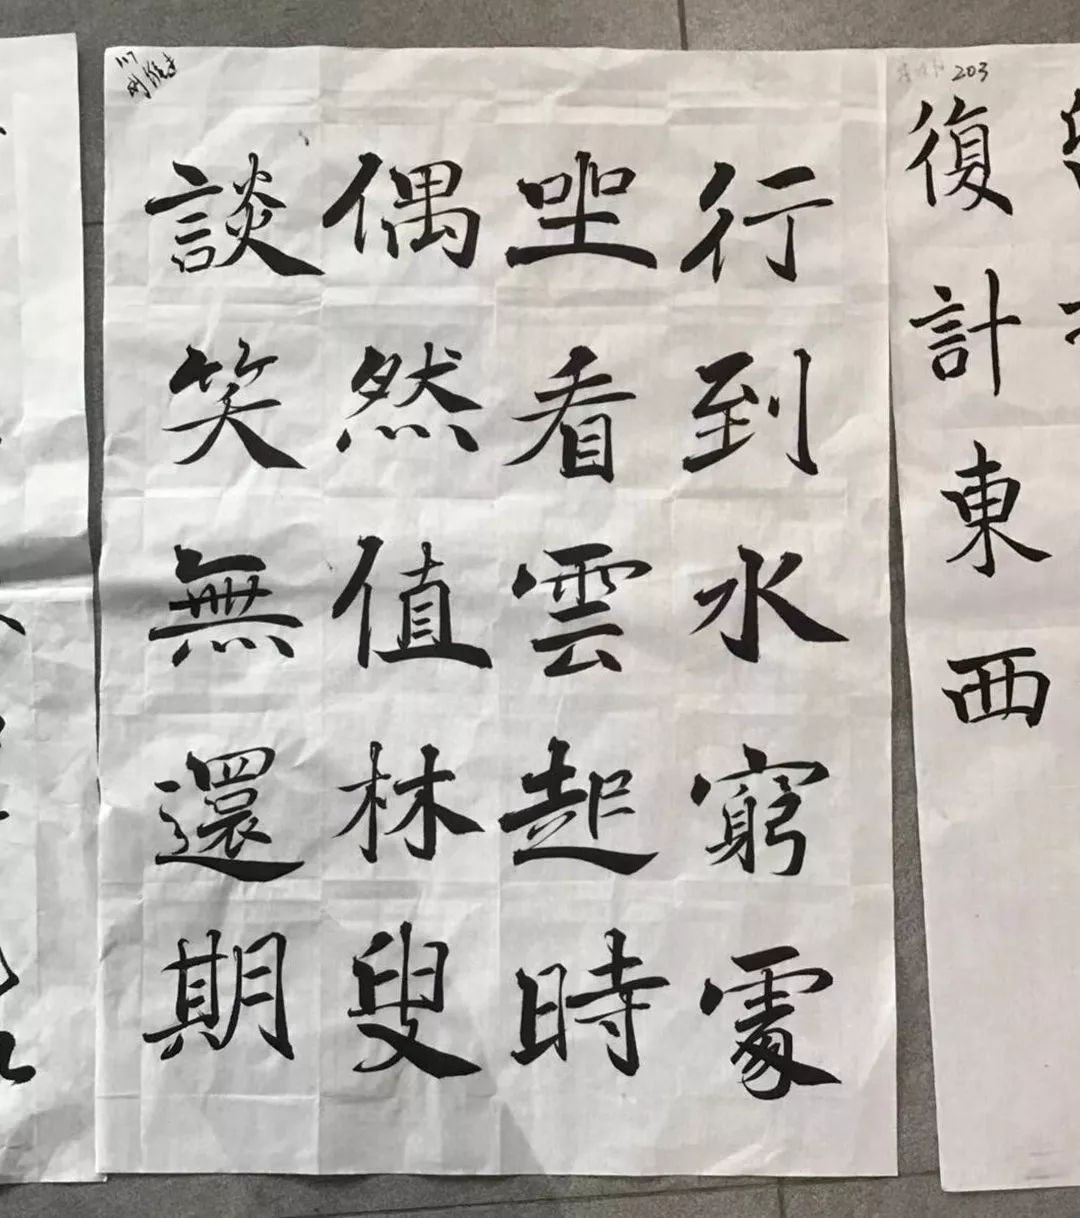 203
復計東西
行到水窮處
坐看雲起時
偶然值林叟
談笑無還期
117